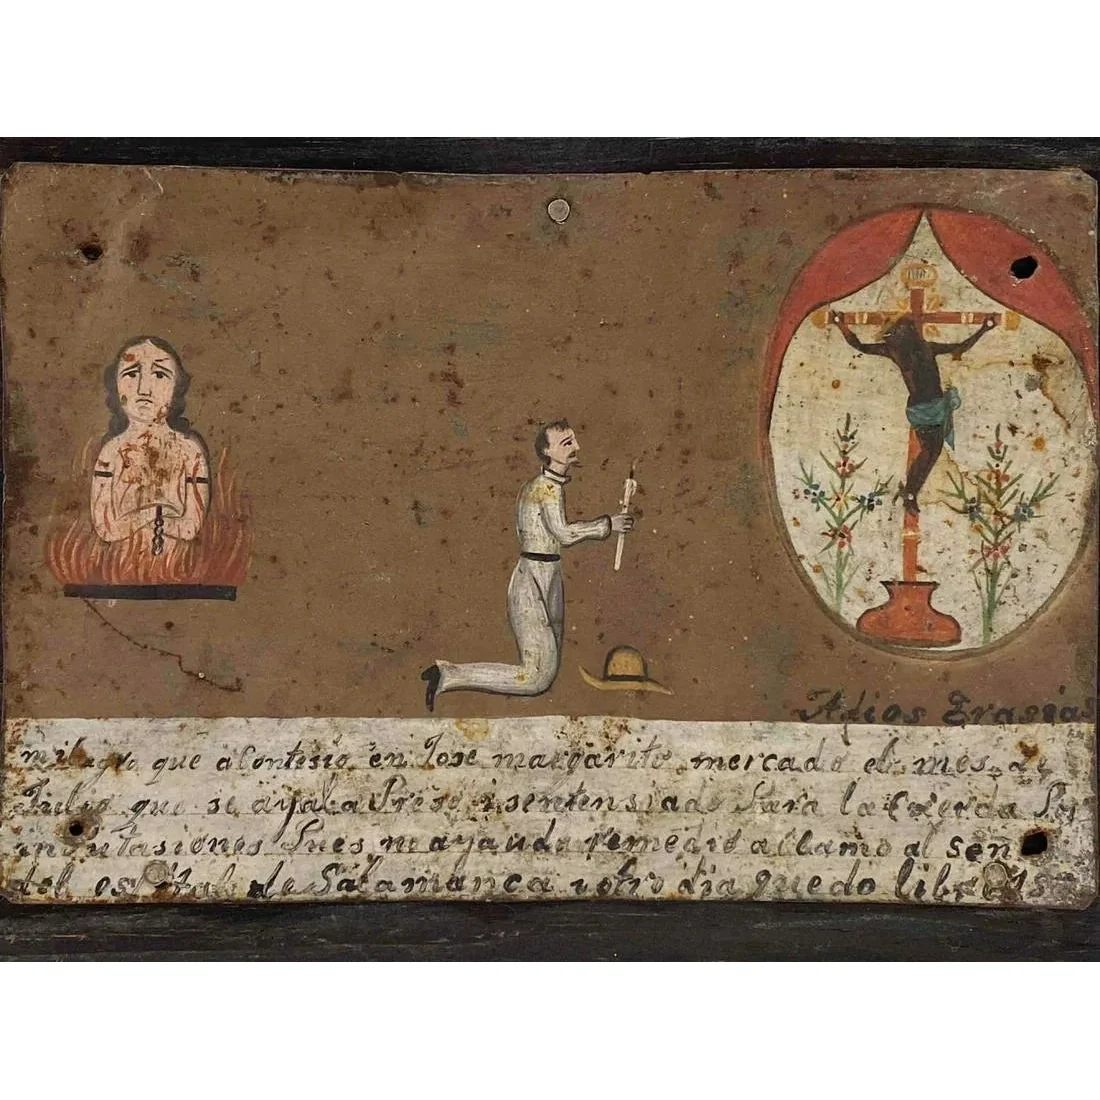 INRI
A Dios Grasias
milagro que acontesio en Jose margarito mercado el mes de
Julio que se ayaba Preso i sentensiado Para la Cuerda Por
inputasiones Pues ... remedio allamo al señ
del ospital de Salamanca i otro dia quedo libre